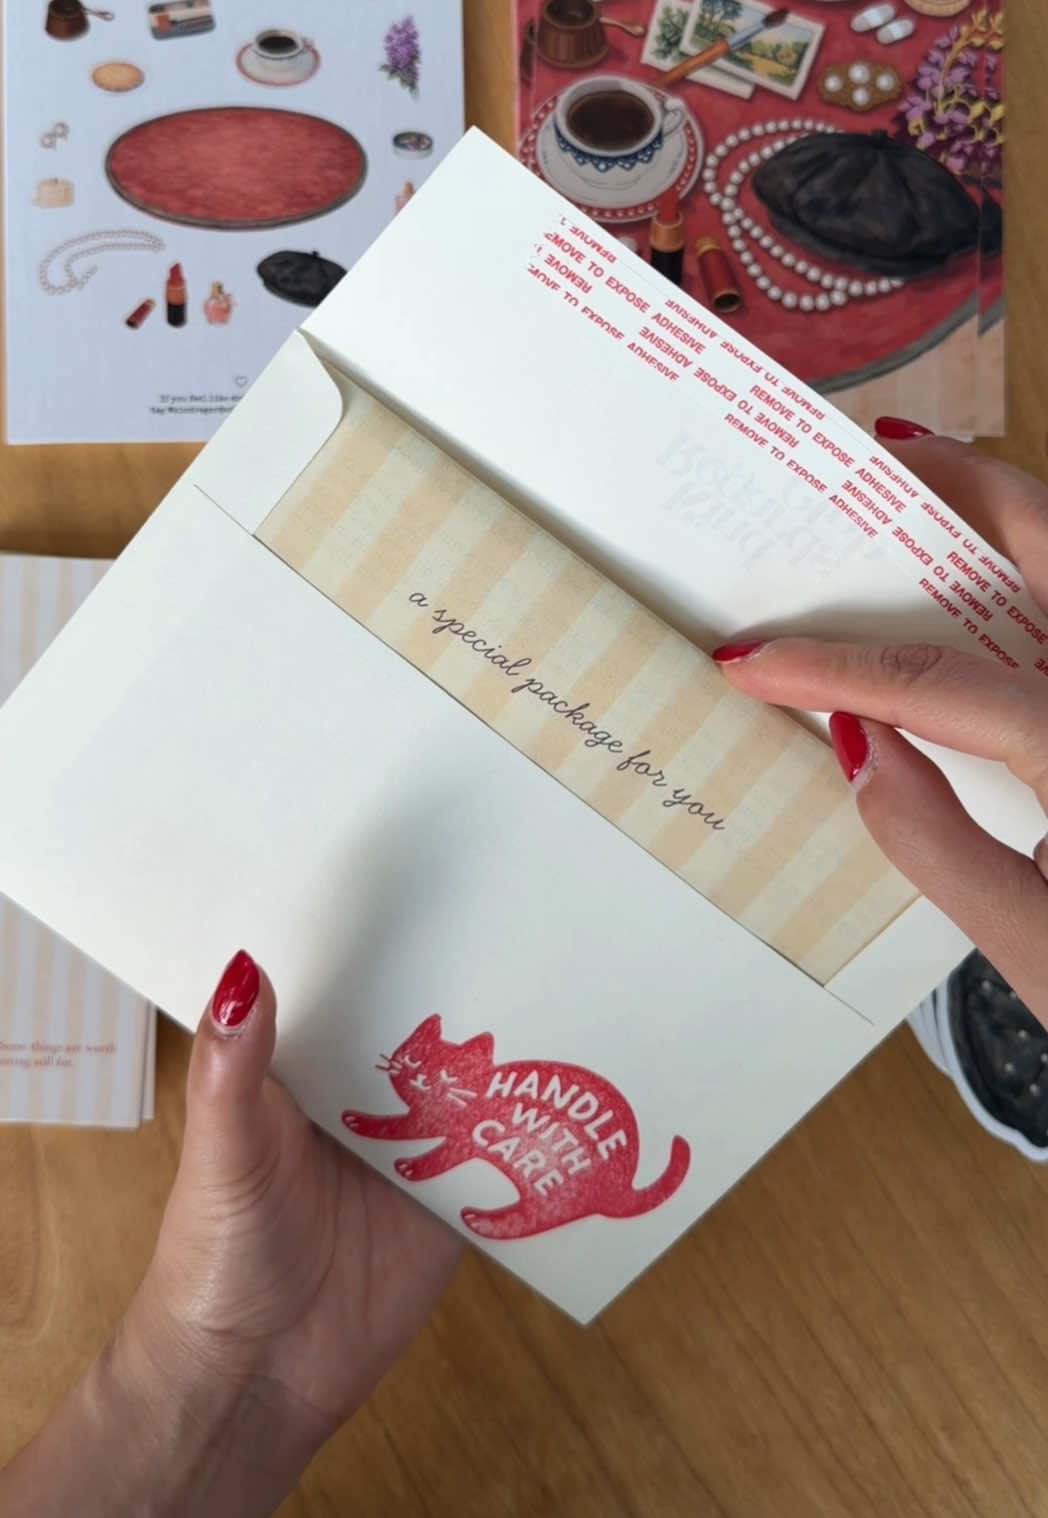 REMOVE TO EXPOSE ADHESIVE
REMOVE TO EXPOSE ADHESIVE
REMOVE TO EXPOSE ADHESIVE
REMOVE TO EXPOSE ADHESIVE
REMOVE TO EXPOSE
a special package for you
HANDLE
WITH
CARE
If you feel like
Some things are worth
sitting still for.